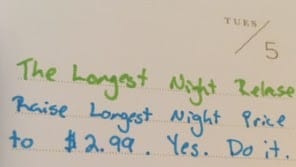 TUES
5
The Longest Night Relase
Raise Longest Night Price
to $2.99. Yes. Do it.